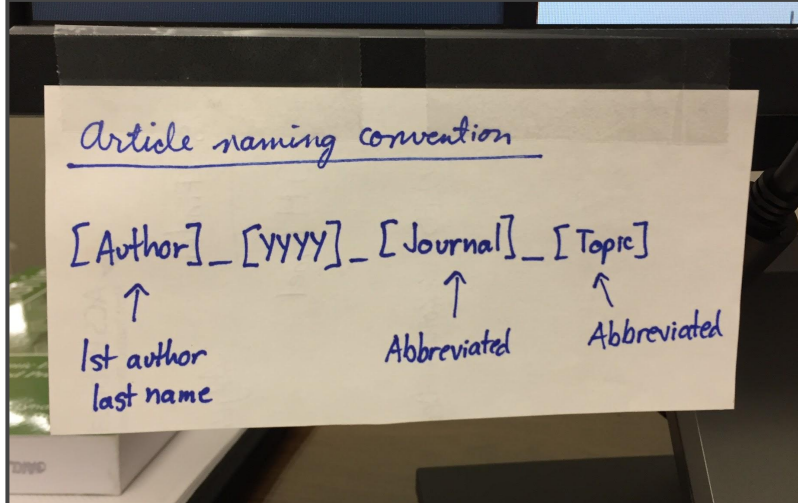 Article naming convention
[Author]_[YYYY]_[Journal]_[Topic]
1st author
last name
Abbreviated
Abbreviated